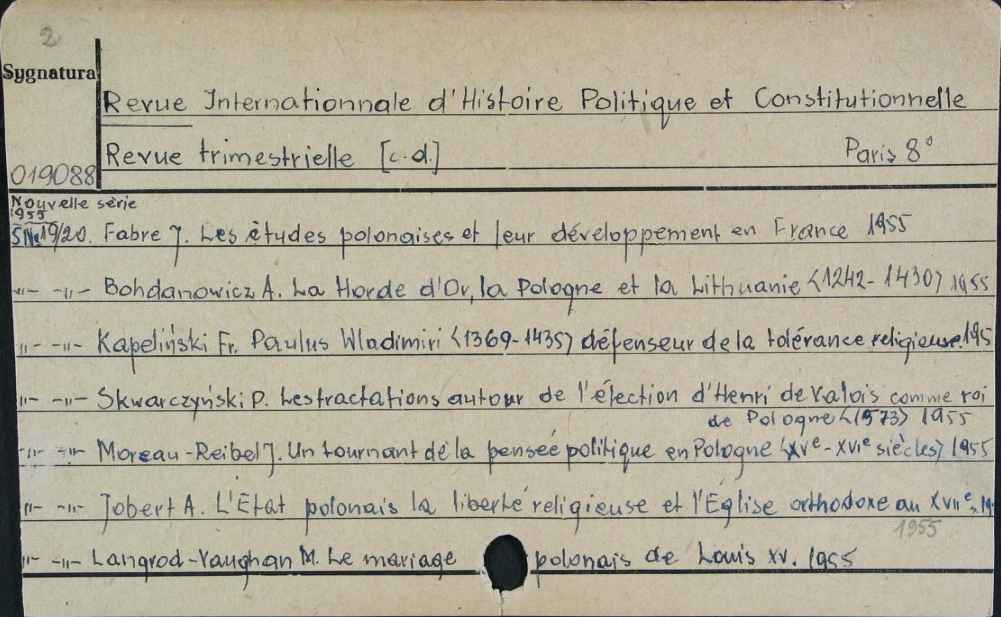 2
Sygnatura
Revue Internationnale d'Histoire Politique et Constitutionnelle
Revue trimestrielle [c.d.] Paris 8°
019088
Nouvelle série
1955
5 No 19/20. Fabre J. Les ètudes polonaises et leur développement en France 1955
-"- -"- Bohdanowicz A. La Horde d'Or, la Pologne et la Lithuanie <1242-1430> 1955
-"- -"- Kapeliński Fr. Paulus Wladimiri <1369-1435> défenseur de la tolérance religieuse. 195
-"- -"- Skwarczyński P. Les tractations autour de l'éfection d'Henri de Valois comme roi
de Pologne <1573> 1955
-"- -"- Moreau-Reibel J. Un tournant dé la penseé politique en Pologne <XVe-XVIe siècles> 1955
-"- -"- Jobert A. L'Etat polonais la liberté religieuse et l'Eglise orthodoxe au XVIIe s. 19
1955
-"- -"- Langrod-Vaughan M. Le mariage polonais de Louis XV. 1955